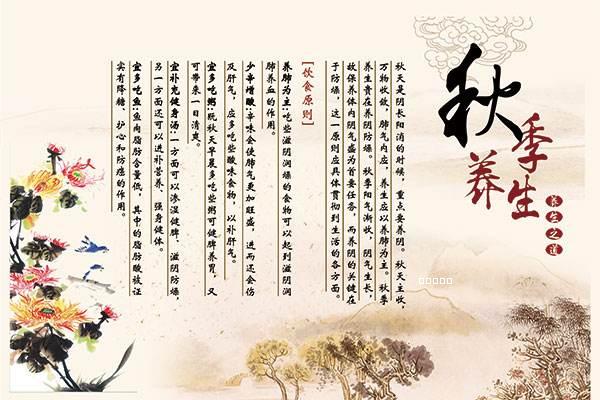 秋季养生
养生之道
秋天是阴长阳消的时候，重点要养阴。秋天主收，
万物收敛，肺气内应，养生应以养肺为主。秋季
养生贵在养阴防燥。秋季阳气渐收，阴气生长，
故保养体内阴气盛为首要任务，而养阴的关键在
于防燥，这一原则应具体贯彻到生活的各方面。
[饮食原则]
养肺为主:吃些滋阴润燥的食物可以起到滋阴润
肺养血的作用。
少辛增酸:辛味会使肺气更加旺盛，进而还会伤
及肝气，应多吃些酸味食物，以补肝气。
宜多吃粥:晚秋天早晨多吃些粥可健脾养胃，又
可带来一日清爽。
宜补充健身汤:一方面可以渗湿健脾、滋阴防燥，
另一方面还可以进补营养、强身健体。
宜多吃鱼:鱼肉脂肪含量低，其中的脂肪酸被证
实有降糖、护心和防癌的作用。